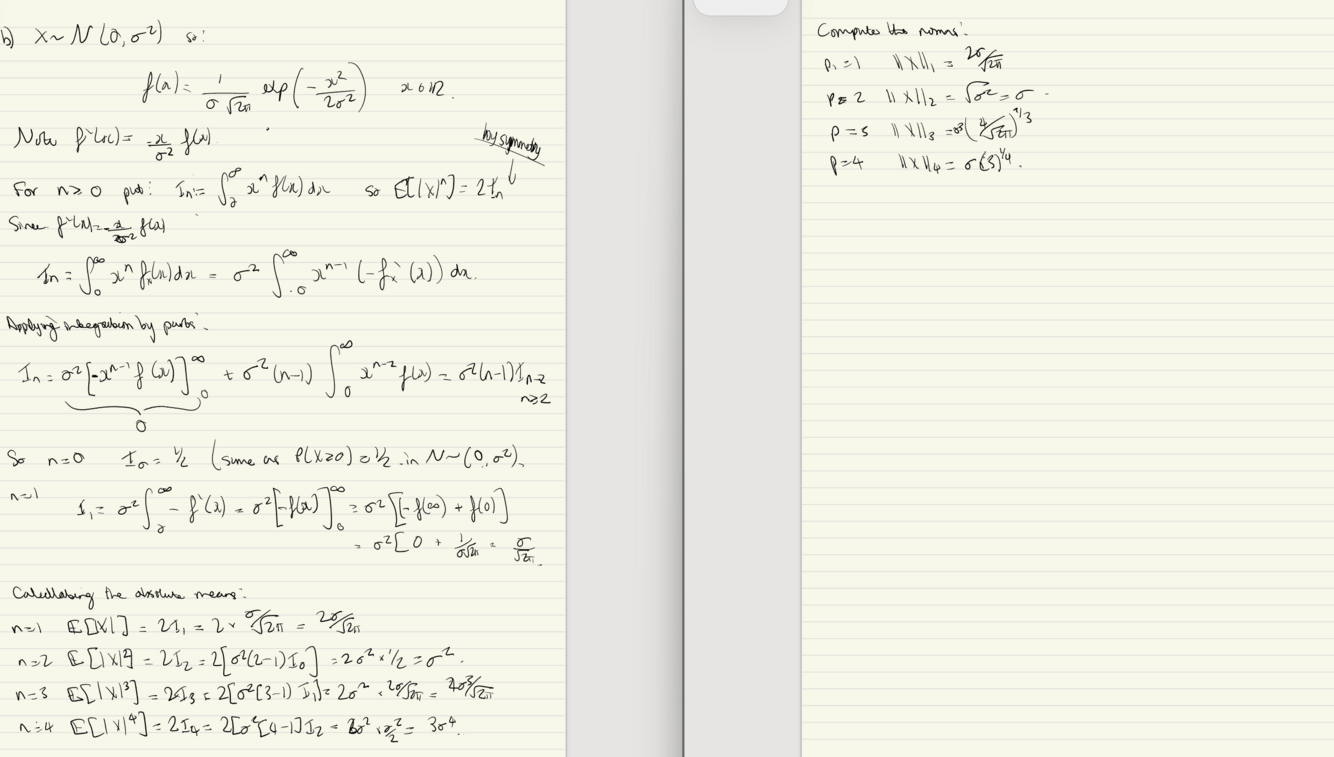 b) X~N(0,σ²) so:
f(x) = 1/(σ√2π) exp(-x²/2σ²) x∈ℝ.
Note f'(x) = -x/σ² f(x)
by symmetry
For n≥0 put: Iₙ := ∫₀^∞ xⁿ f(x) dx so E[|X|ⁿ] = 2Iₙ
Since f'(x) = -x/σ² f(x)
Iₙ = ∫₀^∞ xⁿ fₓ(x) dx = σ² ∫₀^∞ xⁿ⁻¹ (-fₓ'(x)) dx.
Applying integration by parts:
Iₙ = σ²[-xⁿ⁻¹ f(x)]₀^∞ + σ²(n-1) ∫₀^∞ xⁿ⁻² f(x) = σ²(n-1)Iₙ₋₂
n≥2
0
So n=0 I₀ = 1/2 (same as P(X≥0) = 1/2 in N~(0,σ²).
n=1 I₁ = σ² ∫₀^∞ -f'(x) = σ²[-f(x)]₀^∞ = σ²[-f(∞) + f(0)]
= σ²[0 + 1/(σ√2π) = σ/√2π.
Calculating the absolute means:
n=1 E[|X|] = 2I₁ = 2 × σ/√2π = 2σ/√2π
n=2 E[|X|²] = 2I₂ = 2[σ²(2-1)I₀] = 2σ² × 1/2 = σ².
n=3 E[|X|³] = 2I₃ = 2[σ²(3-1) I₁] = 2σ² · 2σ/√2π = 4σ³/√2π
n=4 E[|X|⁴] = 2I₄ = 2[σ²[4-1]I₂ = 6σ² × σ²/2 = 3σ⁴.
Compute the norms:
p=1 ||X||₁ = 2σ/√2π
p=2 ||X||₂ = √σ² = σ.
p=3 ||X||₃ = σ³(4/√2π)^1/3
p=4 ||X||₄ = σ(3)^1/4.